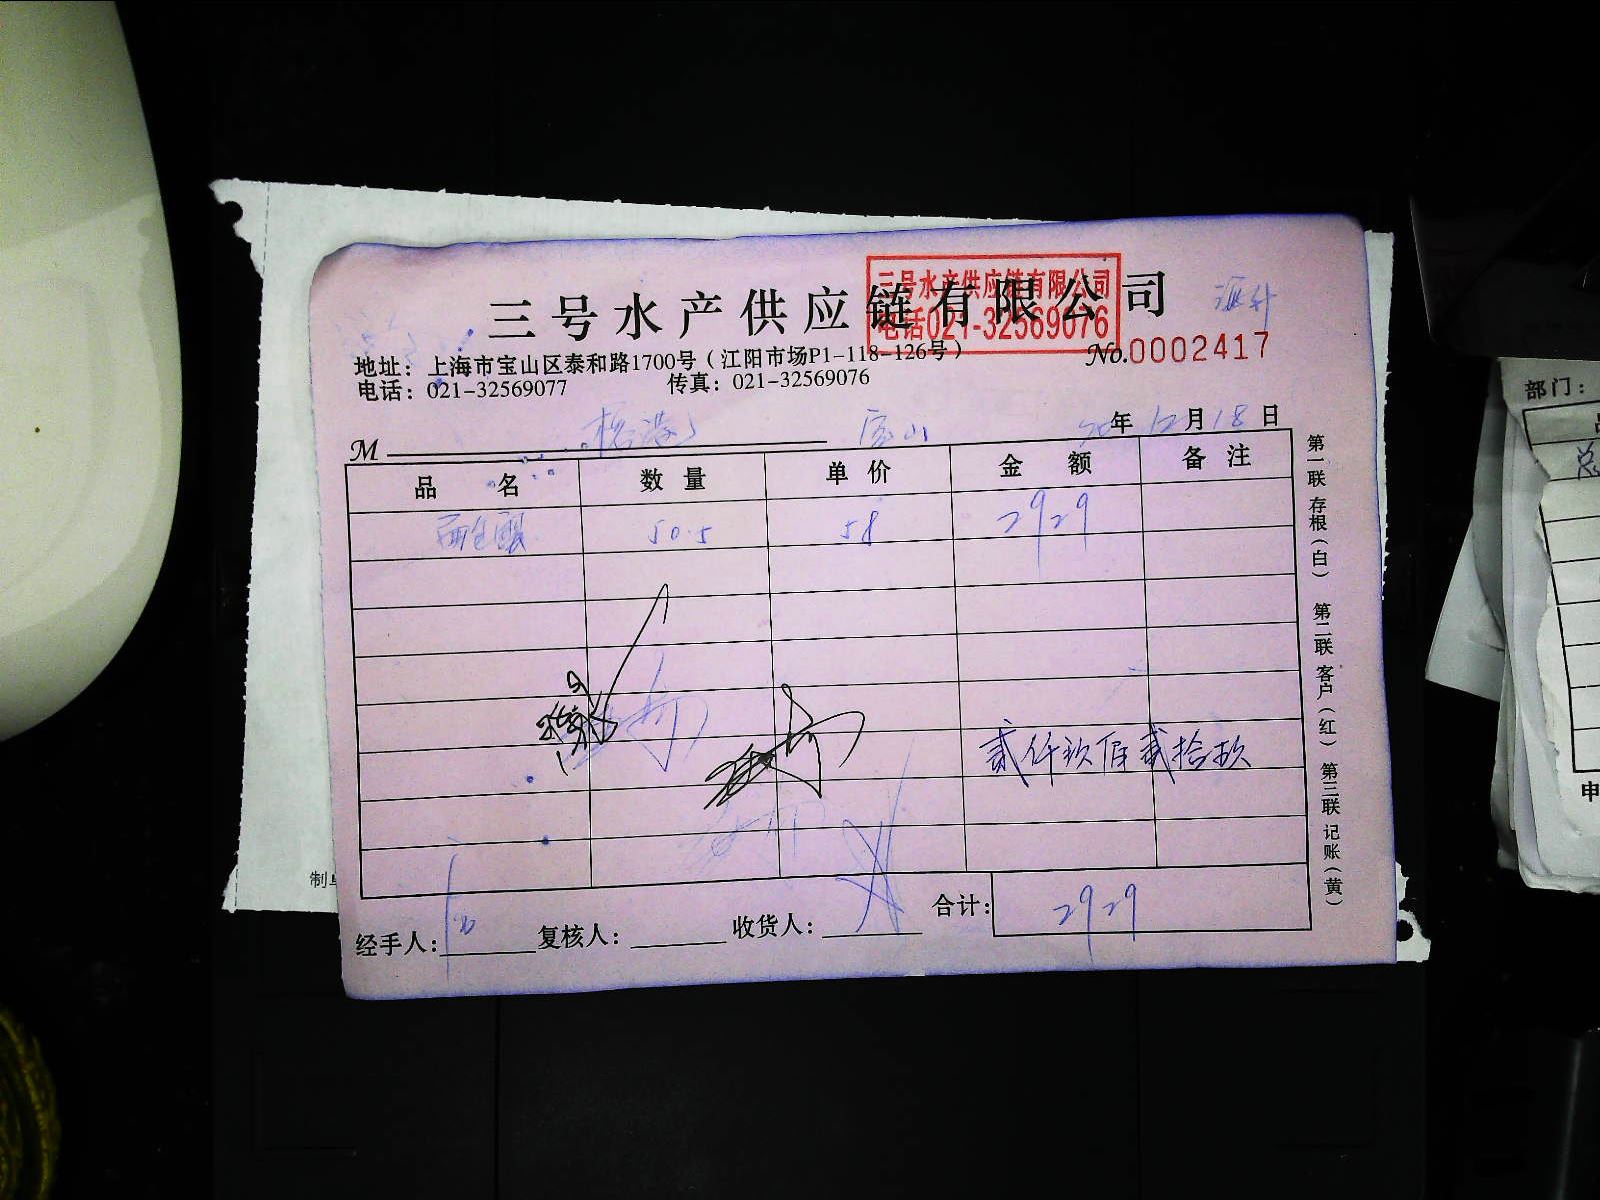 三号水产供应链有限公司
三号水产供应链有限公司
电话021-32569076
地址：上海市宝山区泰和路1700号（江阳市场P1-118-126号）
No.0002417
电话：021-32569077 传真：021-32569076
M 宝山 20年12月18日
品名 数量 单价 金额 备注
50.5 58 2929
贰仟玖佰贰拾玖
经手人： 复核人： 收货人： 合计：2929
第一联 存根（白） 第二联 客户（红） 第三联 记账（黄）
制单
部门：
品
总
申